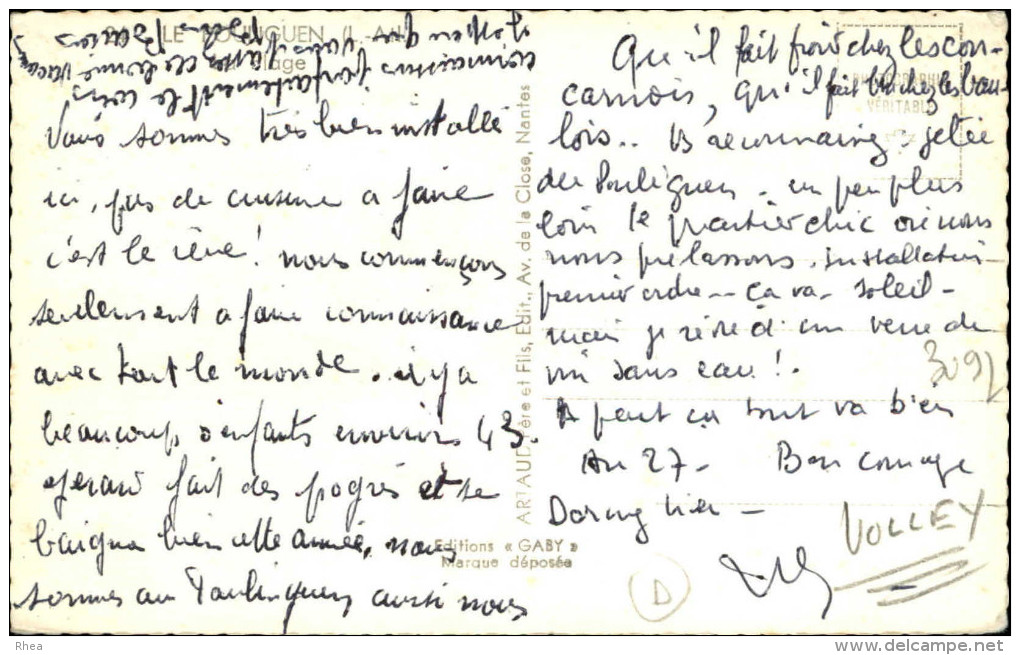 LE POULIGUEN (L.-A.)
Plage
Nous sommes très bien installé
ici, pas de cuisine a faire
c'est le rêve! nous commençons
seulement a faire connaissance
avec tout le monde. il y a
beaucoup d'enfants environ 43.
Gerard fait des pogrès et se
baigne bien cette année, nous
sommes au Poulinguen aussi nous
connaissons parfaitement le coin
ARTAUD Père et Fils, Edit., Av. de la Close, Nantes
Editions « GABY »
Marque déposée
PHOTOGRAPHIE
VÉRITABLE
Qu'il fait froid chez les con-
carnois, qu'il fait bu chez les bau-
lois.. reconnaing: jetée
de Pouliguen. un peu plus
loin le quartier chic où nous
nous prélassons. installation
premier ordre - ça va - soleil -
mais je rêve d'un verre de
vin sans eau!.
A part ça tout va bien
Au 27 - Bon courage
3092
VOLLEY
D
Rhea
www.delcampe.net